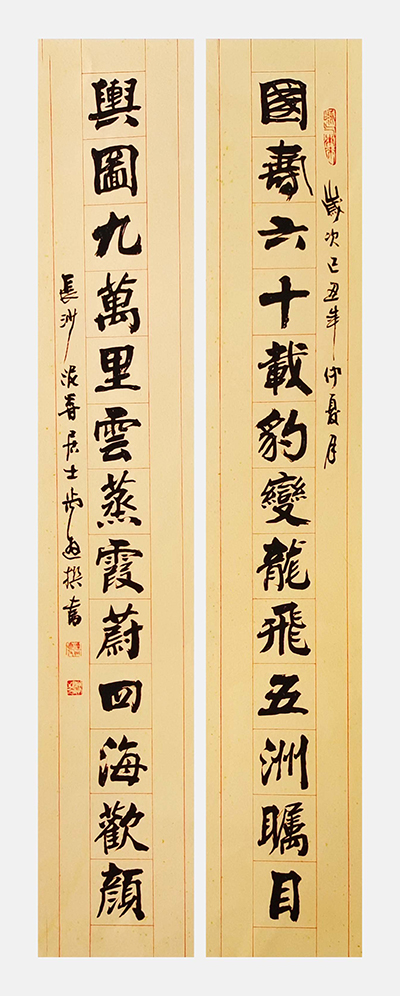 歲次己丑年仲夏月
國壽六十載豹變龍飛五洲矚目
輿圖九萬里雲蒸霞蔚四海歡顏
長沙居士撰書